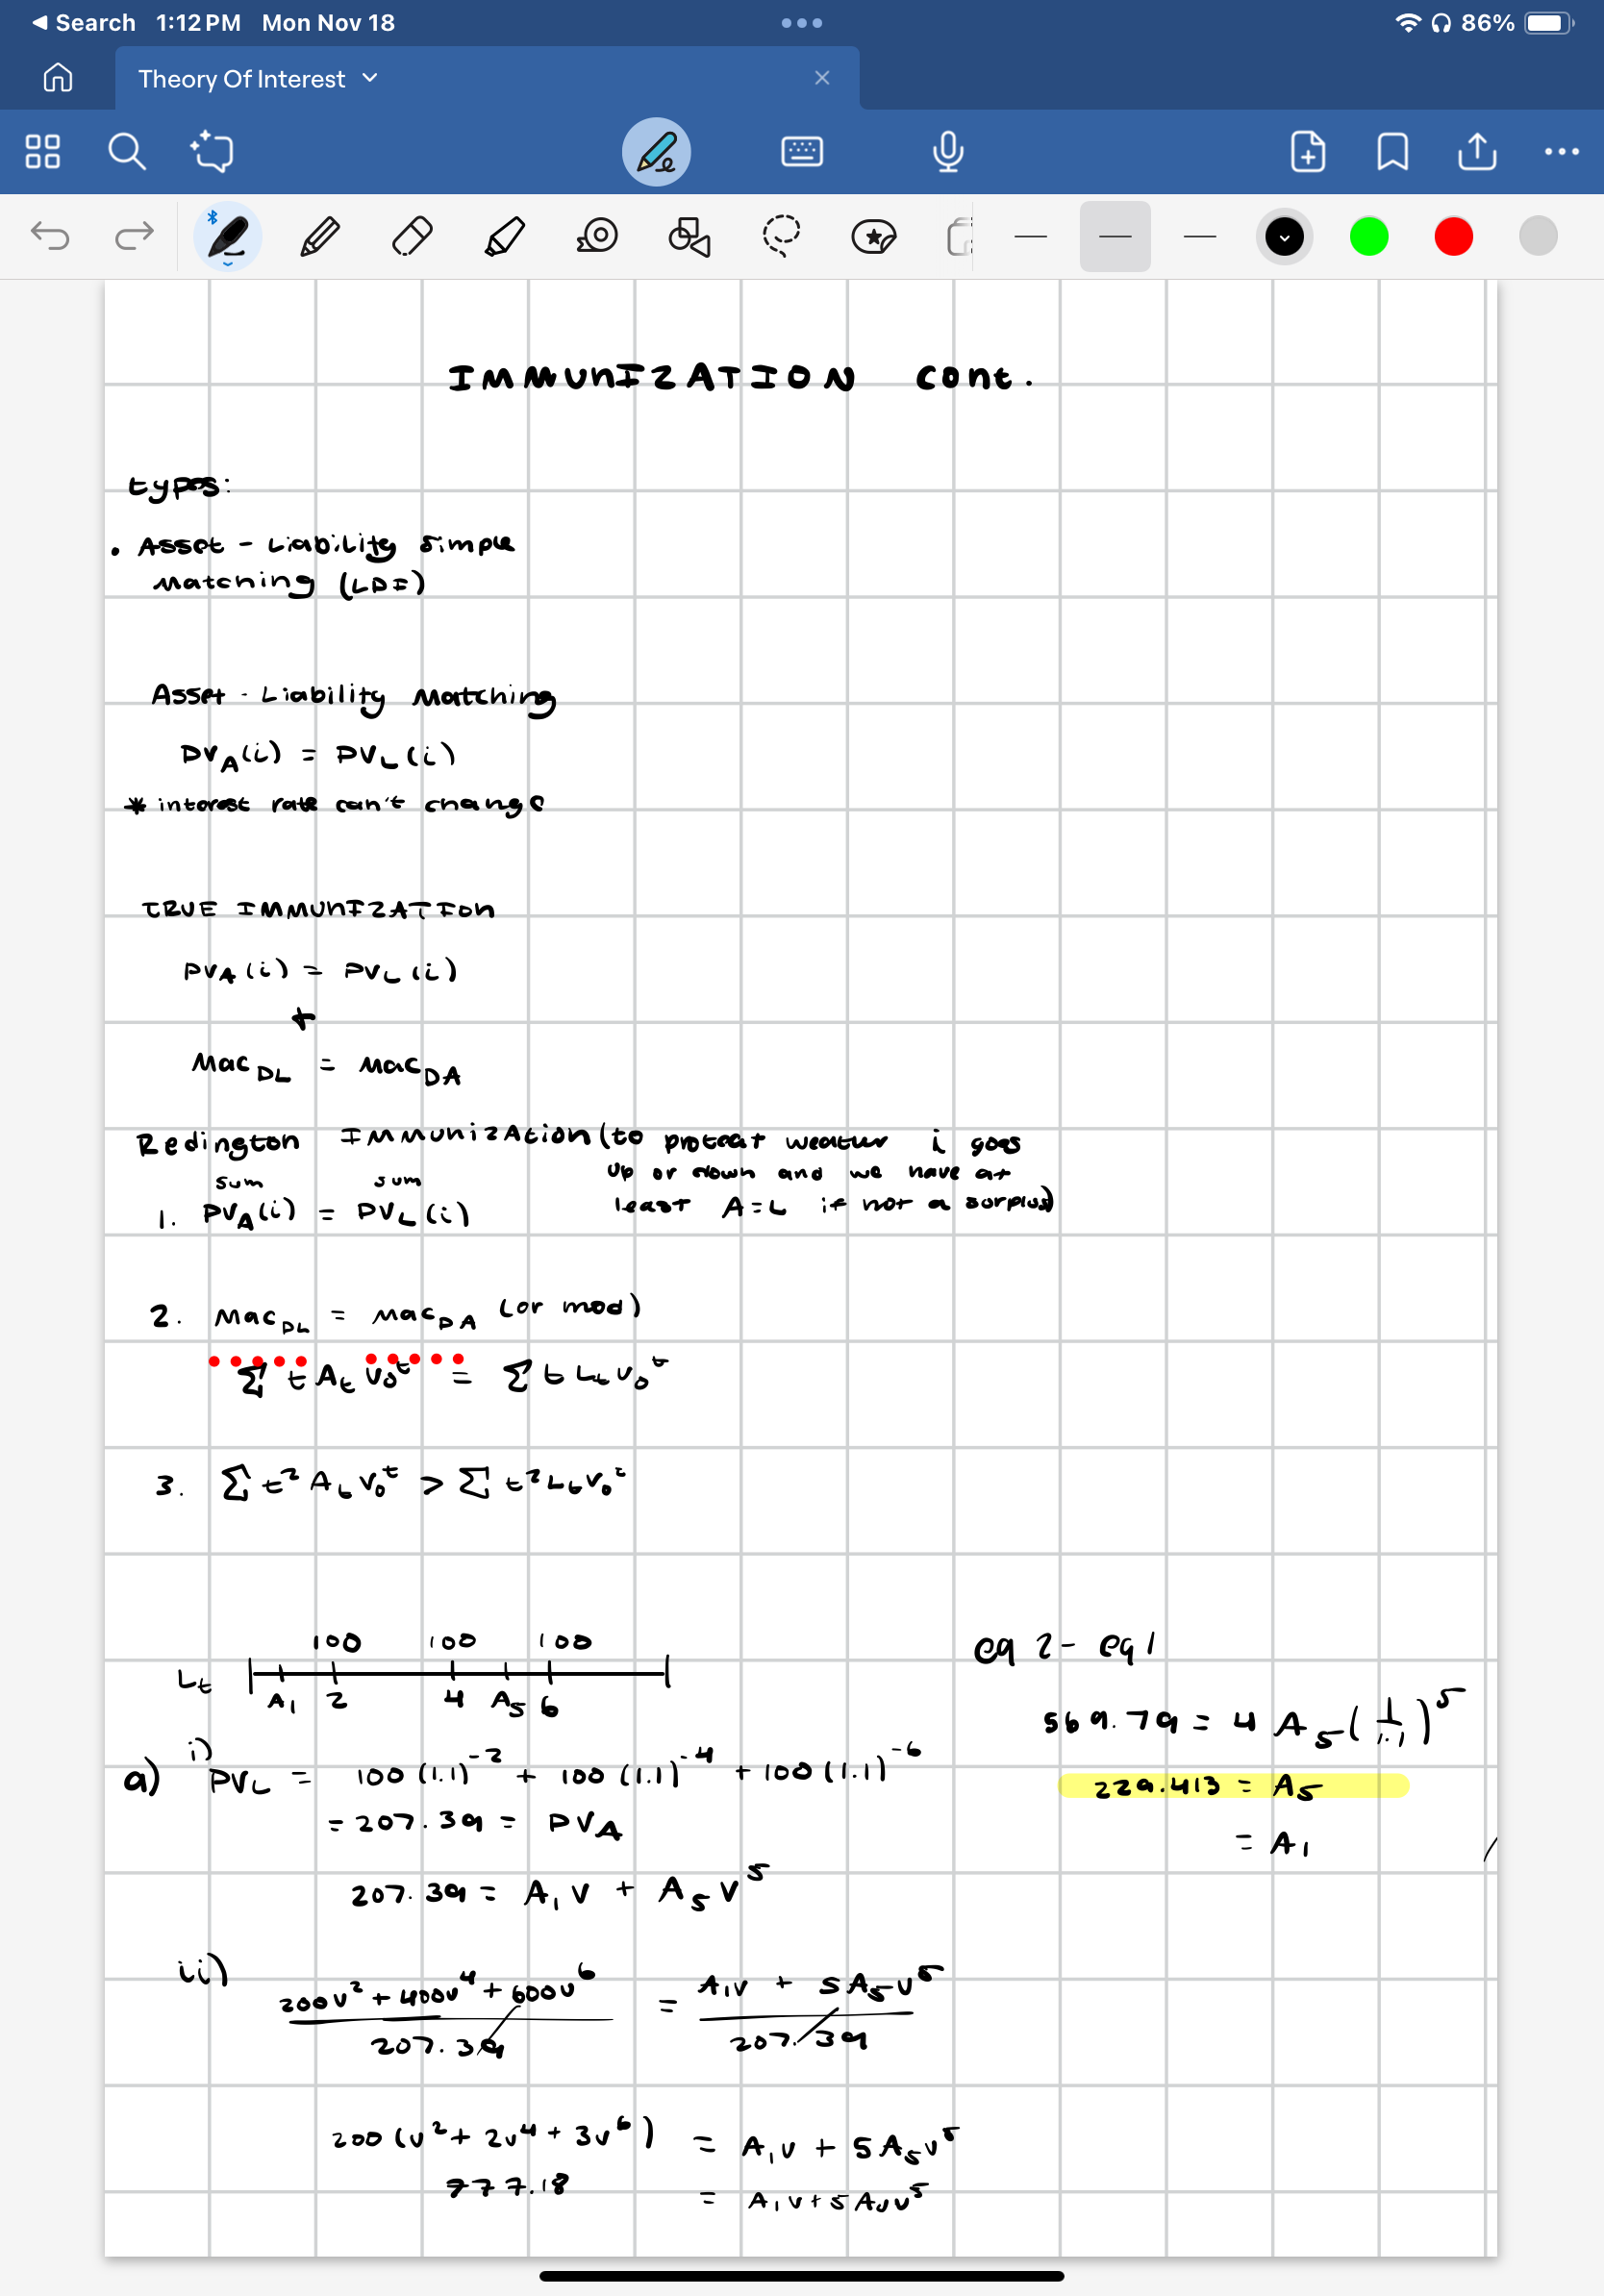 Search 1:12 PM Mon Nov 18 86%
Theory Of Interest
IMMUNIZATION cont.
types:
• Asset - Liability simple
matching (LDI)
Asset - Liability Matching
PV_A(i) = PV_L(i)
* interest rate can't change
TRUE IMMUNIZATION
PV_A(i) = PV_L(i)
+
Mac_DL = Mac_DA
Redington Immunization (to protect weather i goes
up or down and we have at
least A=L if not a surplus)
sum sum
1. PV_A(i) = PV_L(i)
2. Mac_DL = Mac_DA (or mod)
Σ t A_t v_0^t = Σ t L_t v_0^t
3. Σ t² A_t v_0^t > Σ t² L_t v_0^t
100 100 100
L_t
A_1 2 4 A_5 6
a) i) PV_L = 100 (1.1)^-2 + 100 (1.1)^-4 + 100 (1.1)^-6
= 207.39 = PV_A
207.39 = A_1 v + A_5 v^5
ii) 200v² + 400v^4 + 600v^6 = A_1v + 5A_5v^5
207.39 207.39
200 (v² + 2v^4 + 3v^6) = A_1v + 5A_5v^5
777.18 = A_1v + 5A_5v^5
eq 2 - eq 1
569.79 = 4 A_5 (1/1.1)^5
229.413 = A_5
= A_1